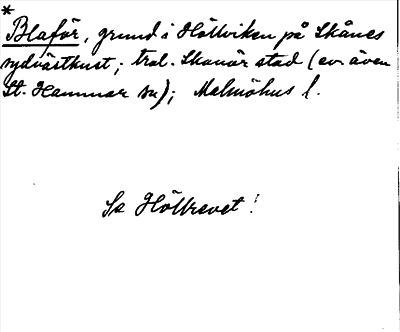 *
Blaför, grund i Höllviken på Skånes
sydvästkust; trol. Skanör stad (ev. även
St. Hammar sn); Malmöhus l.
Se Höllrevet!